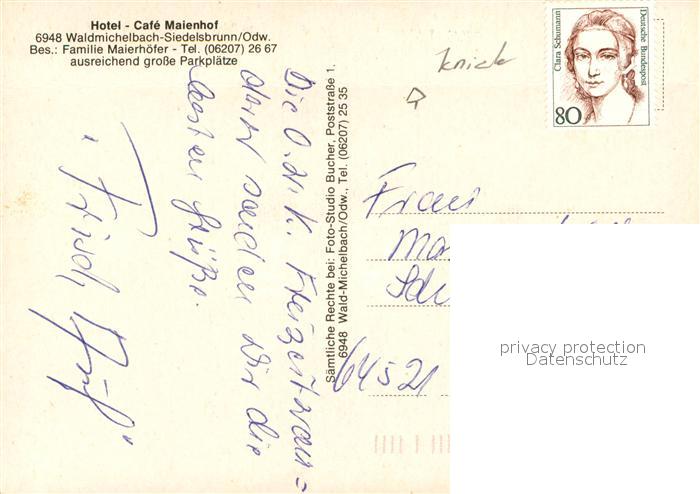 Hotel - Café Maienhof
6948 Waldmichelbach-Siedelsbrunn/Odw.
Bes.: Familie Maierhöfer - Tel. (06207) 26 67
ausreichend große Parkplätze
Die O.d.K. Freizeitwan=
derer senden Dir die
besten Grüße.
"Frisch Auf"
Sämtliche Rechte bei: Foto-Studio Bucher, Poststraße 1,
6948 Wald-Michelbach/Odw., Tel. (06207) 25 35
Knick
Clara Schumann
Deutsche Bundespost
80
Frau
64521
privacy protection
Datenschutz